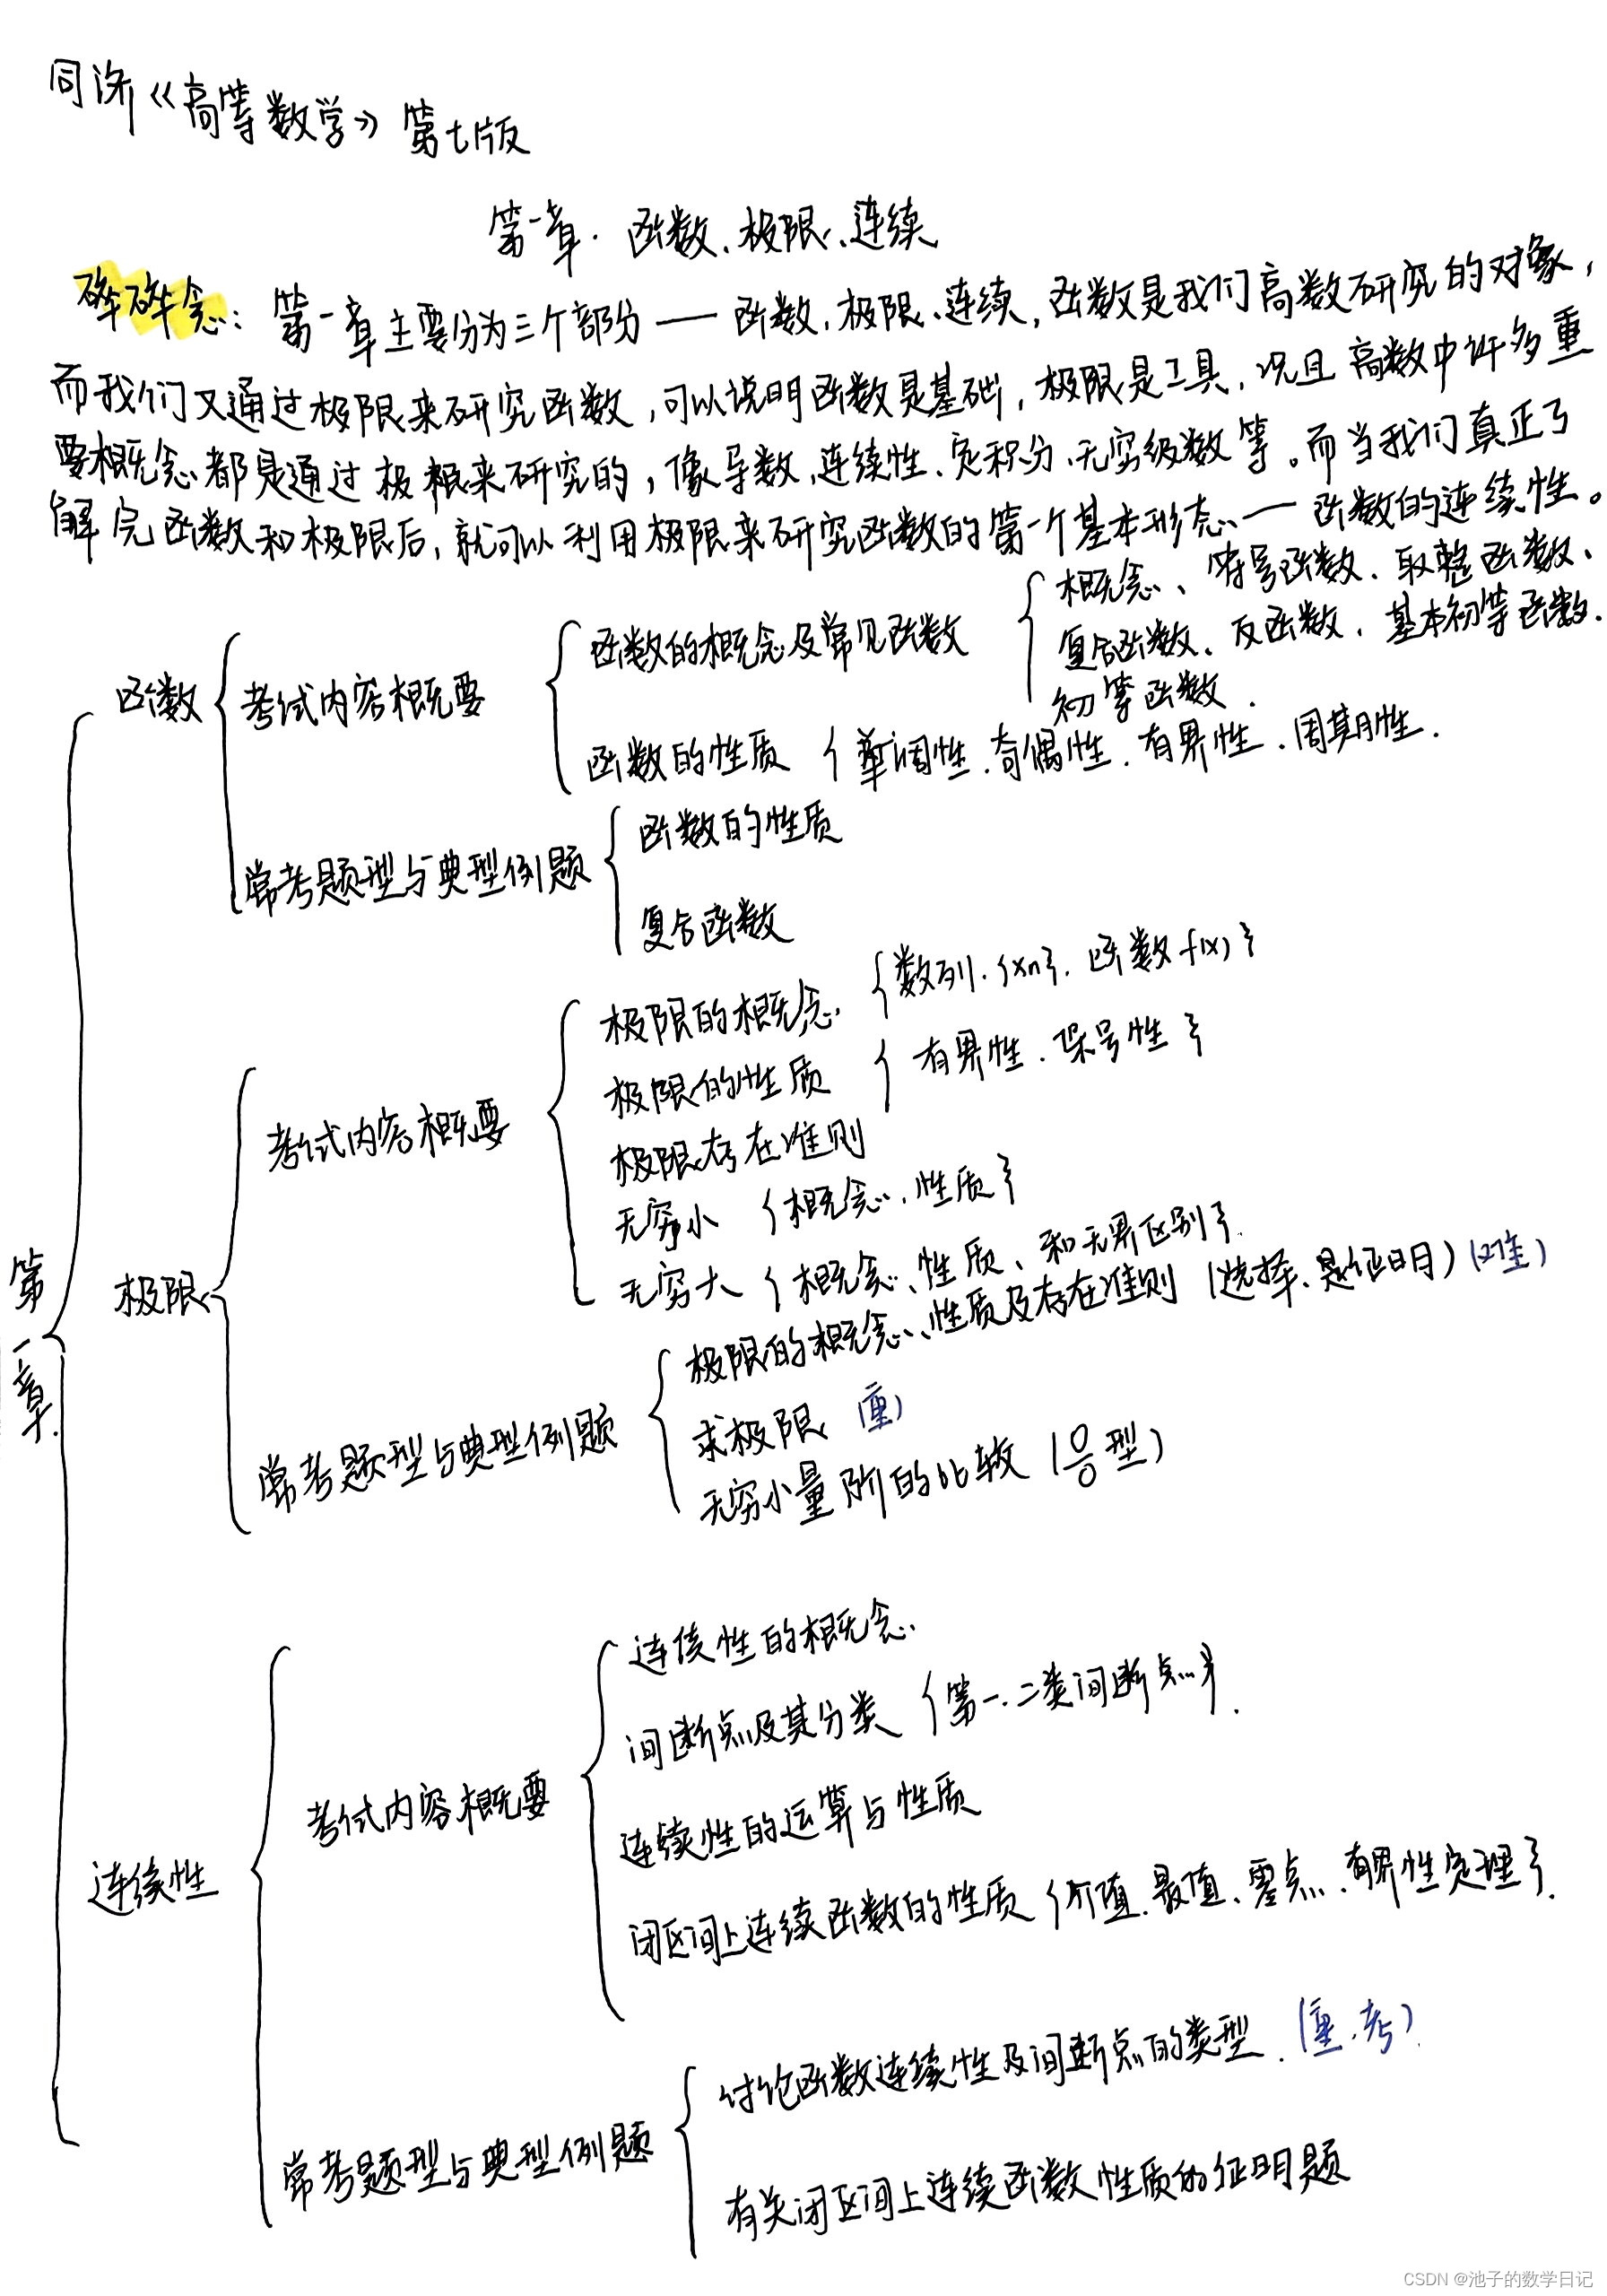 同济《高等数学》第七版
第一章. 函数、极限、连续
碎碎念: 第一章主要分为三个部分——函数、极限、连续,函数是我们高数研究的对象,
而我们又通过极限来研究函数,可以说明函数是基础,极限是工具,况且高数中许多重
要概念都是通过极限来研究的,像导数、连续性、定积分、无穷级数等。而当我们真正了
解完函数和极限后,就可以利用极限来研究函数的第一个基本形态——函数的连续性。
第一章.
函数
考试内容概要
函数的概念及常见函数
概念、符号函数、取整函数、
复合函数、反函数、基本初等函数.
初等函数.
函数的性质 {单调性、奇偶性、有界性、周期性.
常考题型与典型例题
函数的性质
复合函数
极限
考试内容概要
极限的概念 {数列.{xn}、函数f(x)}
极限的性质 {有界性、保号性}
极限存在准则
无穷小 {概念、性质}
无穷大 {概念、性质、和无界区别}
常考题型与典型例题
极限的概念、性质及存在准则 (选择、是证明) (难)
求极限 (重)
无穷小量阶的比较 (0/0型)
连续性
考试内容概要
连续性的概念
间断点及其分类 {第一、二类间断点}.
连续性的运算与性质
闭区间上连续函数的性质 {价值、最值、零点、有界性定理}.
常考题型与典型例题
讨论函数连续性及间断点的类型. (重.考).
有关闭区间上连续函数性质的证明题
CSDN @池子的数学日记